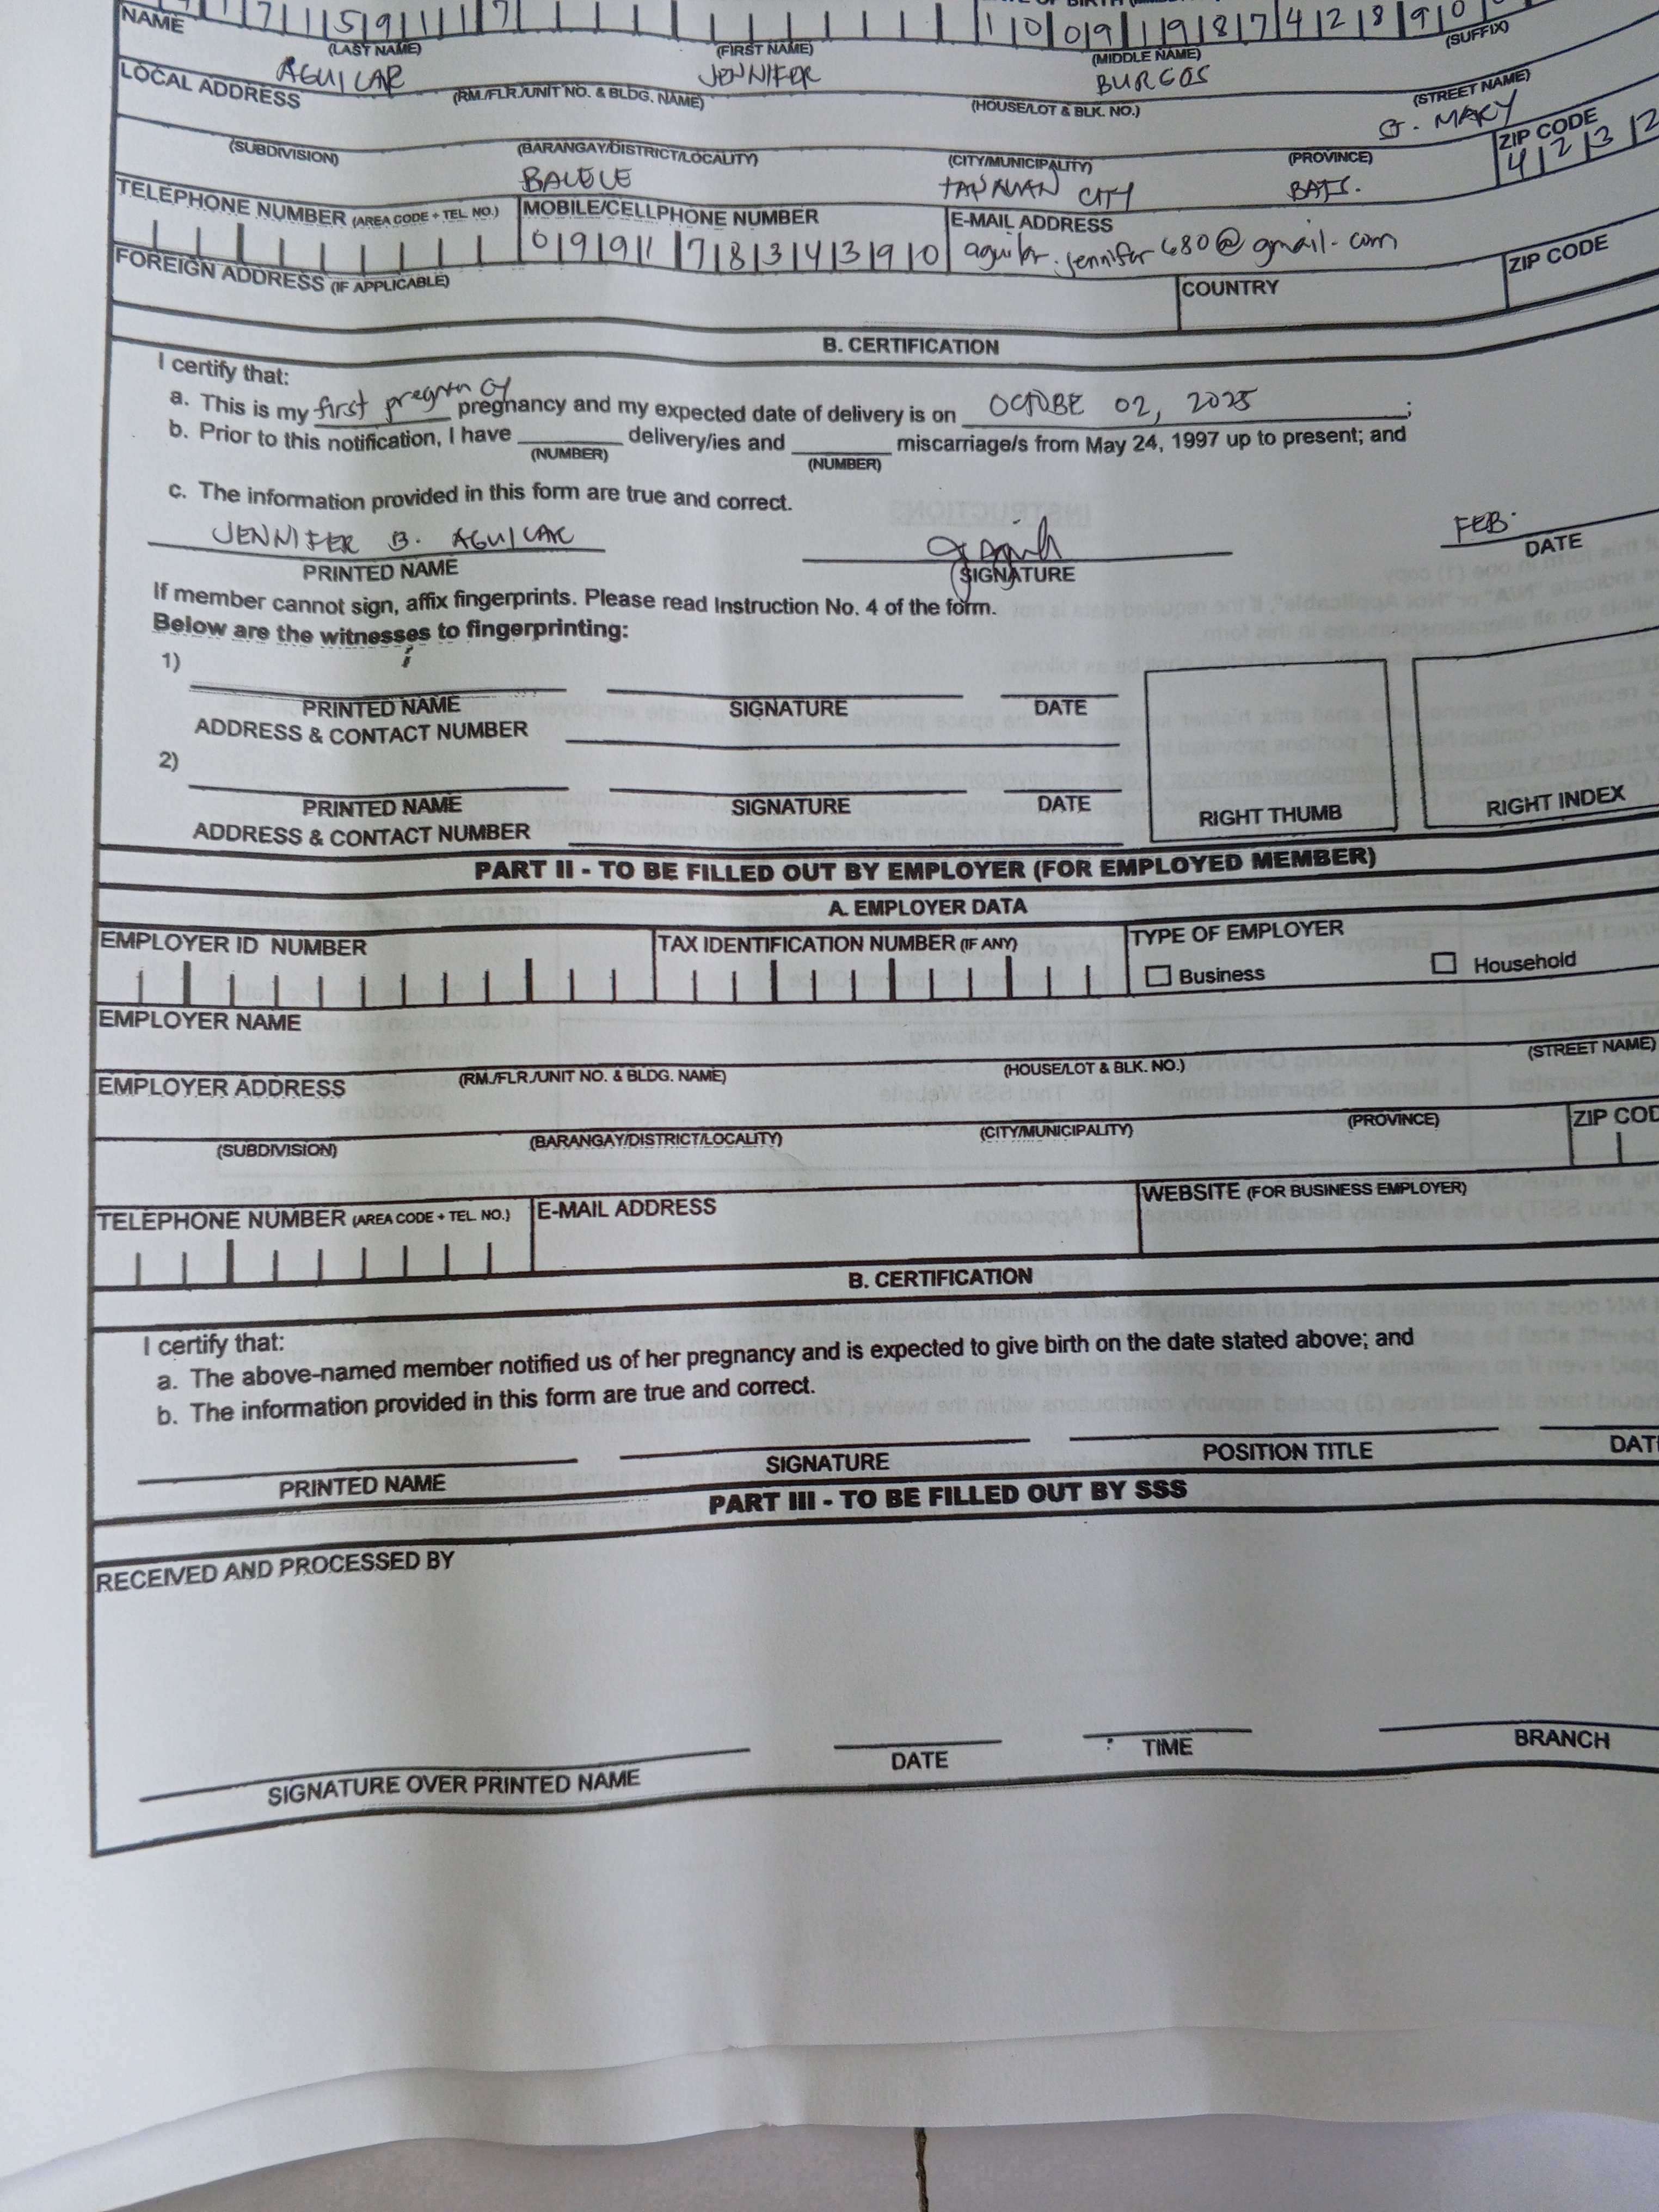 NAME
7 1 1 5 9 1 1 1 7
1 0 0 9 1 9 8 7 4 2 8 9 0
(LAST NAME) (FIRST NAME) (MIDDLE NAME) (SUFFIX)
AGUILAR JENNIFER BURGOS
LOCAL ADDRESS (RM./FLR./UNIT NO. & BLDG. NAME) (HOUSE/LOT & BLK. NO.) (STREET NAME)
ST. MARY
(SUBDIVISION) (BARANGAY/DISTRICT/LOCALITY) (CITY/MUNICIPALITY) (PROVINCE) ZIP CODE
BALELE TANAUAN CITY BATS. 4 2 3 2
TELEPHONE NUMBER (AREA CODE + TEL. NO.) MOBILE/CELLPHONE NUMBER E-MAIL ADDRESS
0 9 9 1 7 8 3 4 3 9 0 aguilar.jennifer680@gmail.com
FOREIGN ADDRESS (IF APPLICABLE) COUNTRY ZIP CODE
B. CERTIFICATION
I certify that:
a. This is my first pregnancy pregnancy and my expected date of delivery is on OCTOBE 02, 2025;
b. Prior to this notification, I have delivery/ies and miscarriage/s from May 24, 1997 up to present; and
(NUMBER) (NUMBER)
c. The information provided in this form are true and correct.
JENNIFER B. AGUILAR FEB.
PRINTED NAME SIGNATURE DATE
If member cannot sign, affix fingerprints. Please read Instruction No. 4 of the form.
Below are the witnesses to fingerprinting:
1)
PRINTED NAME SIGNATURE DATE
ADDRESS & CONTACT NUMBER
2)
PRINTED NAME SIGNATURE DATE
ADDRESS & CONTACT NUMBER
RIGHT THUMB RIGHT INDEX
PART II - TO BE FILLED OUT BY EMPLOYER (FOR EMPLOYED MEMBER)
A. EMPLOYER DATA
EMPLOYER ID NUMBER TAX IDENTIFICATION NUMBER (IF ANY) TYPE OF EMPLOYER
Business Household
EMPLOYER NAME
EMPLOYER ADDRESS (RM./FLR./UNIT NO. & BLDG. NAME) (HOUSE/LOT & BLK. NO.) (STREET NAME)
(SUBDIVISION) (BARANGAY/DISTRICT/LOCALITY) (CITY/MUNICIPALITY) (PROVINCE) ZIP COD
TELEPHONE NUMBER (AREA CODE + TEL. NO.) E-MAIL ADDRESS WEBSITE (FOR BUSINESS EMPLOYER)
B. CERTIFICATION
I certify that:
a. The above-named member notified us of her pregnancy and is expected to give birth on the date stated above; and
b. The information provided in this form are true and correct.
PRINTED NAME SIGNATURE POSITION TITLE DAT
PART III - TO BE FILLED OUT BY SSS
RECEIVED AND PROCESSED BY
SIGNATURE OVER PRINTED NAME DATE TIME BRANCH